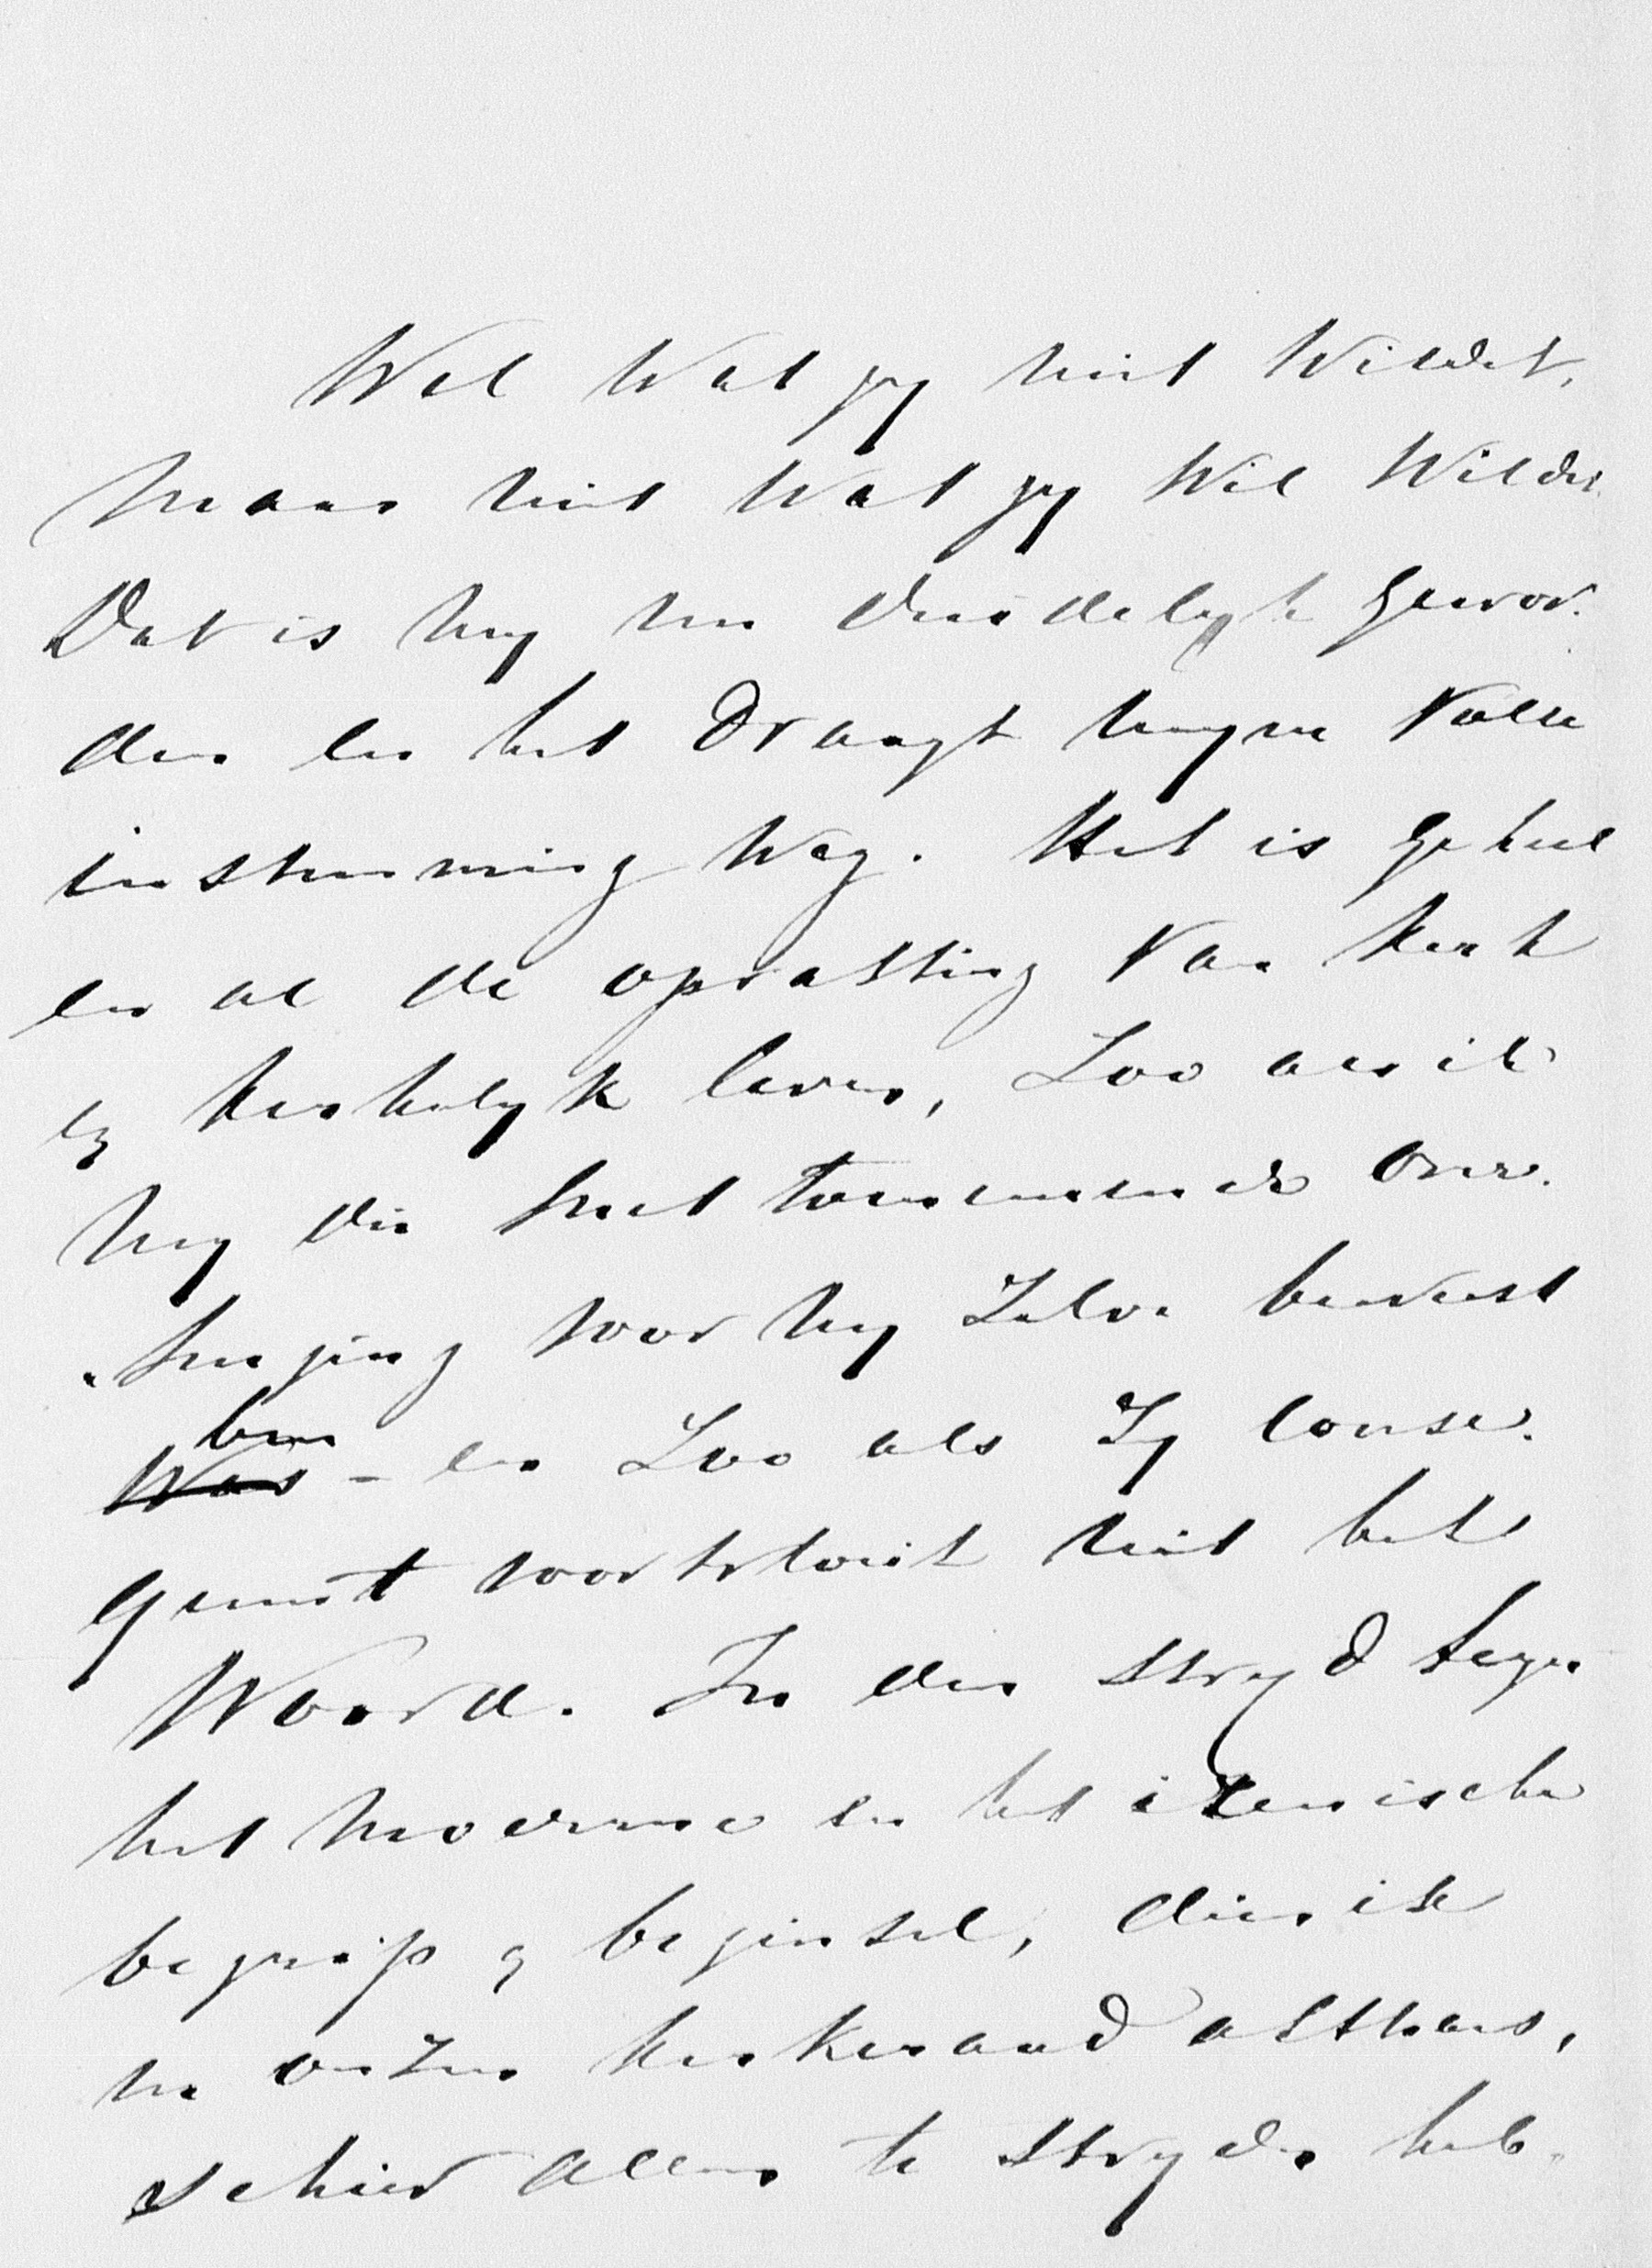 Wel wat gij niet wildet,
maar niet wat gij wel wildet
Dat is mij nu duidelijk gewor-
den en het draagt mijne volle
instemming weg. Het is geheel
en al de opvatting van kerk
en kerkelijk leven, zoo als ik
mij die met toenemende over-
tuiging voor mij zelve bewust
ben was - en zoo als zij conse-
quent voortvloeit uit het
Woord. In den strijd tegen
het moderne en het irenische
begrip en beginsel, dien ik
in onzen kerkeraad althans,
schier alleen te strijden heb